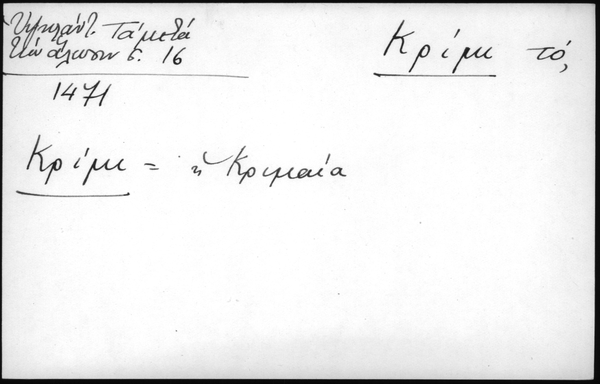 Ὑψηλάντ. Τά μετά
τήν ἅλωσιν σ. 16
1471
Κρίμι τό,
Κρίμι = ἡ Κριμαία